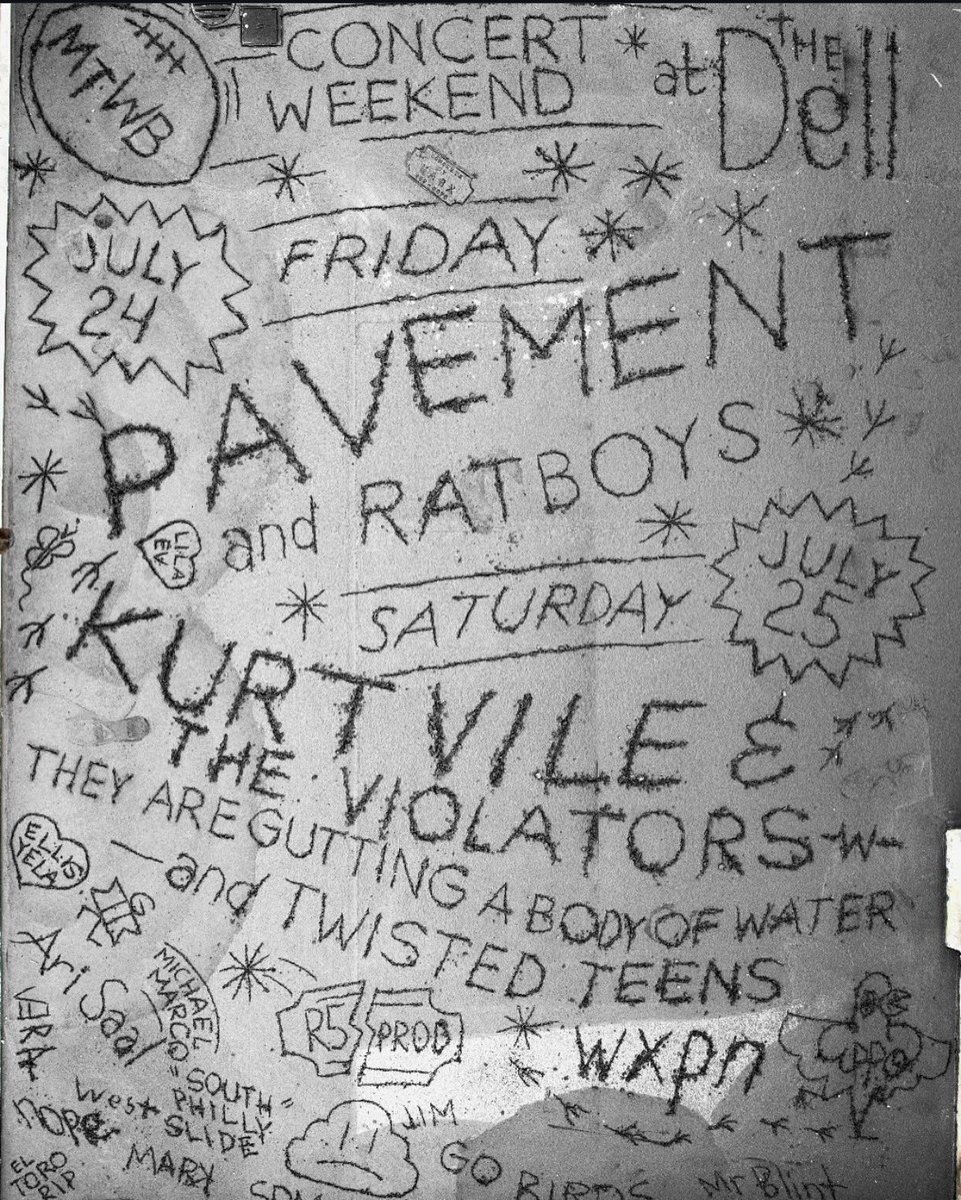 MTWB
CONCERT
WEEKEND
at THE Dell
JULY
24
FRIDAY
PAVEMENT
and RATBOYS
LILA
EV
JULY
25
SATURDAY
KURT VILE &
THE VIOLATORS -W-
THEY ARE GUTTING A BODY OF WATER
and TWISTED TEENS
ELLIS
YELA
Ari Saal
MICHAEL
MARCO
"SOUTH
PHILLY
SLIDE"
VERA
R5 PROD
wxpn
PPO
West
nope
MARX
EL
TORO
RIP
JIM
GO
BIRDS
Mr Blint